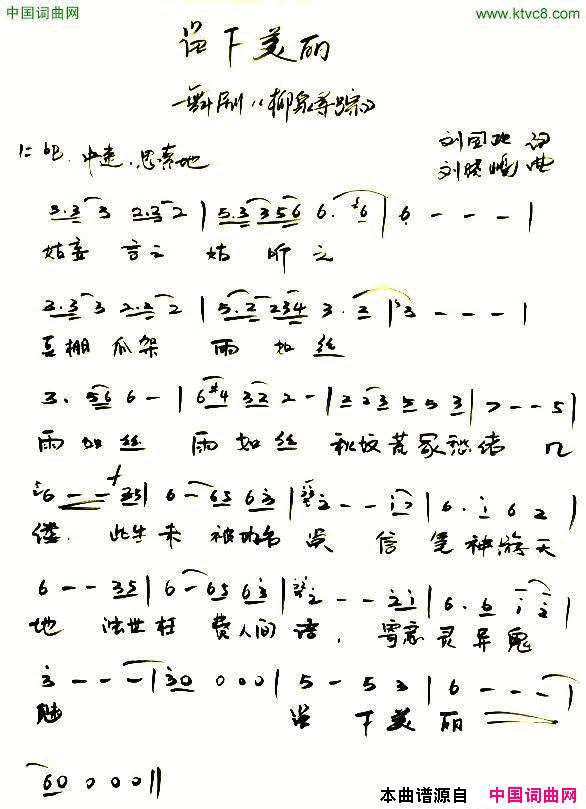 中国词曲网 www.ktvc8.com
留下美丽
舞剧《柳泉寻踪》
1=bE 中速.思索地
刘国 词
刘 曲
3.3 3 2.3 2 | 5.3 3 5 6 6. 6 | 6 - - - |
姑妄言之 姑听之
3.3 3 2.2 2 | 5.2 2 3 4 3. 2 | 3 - - - |
豆棚瓜架 雨如丝
3. 5 6 6 - | 6 #4 3 2 2 - | 2 2 3 5 5 3 | 7 - - 5 |
雨如丝 雨如丝 秋坟荒冢愁绪 几
6 - - 3 5 | 6 - 6 5 6 3 | 2 - - 1 7 | 6. 1 6 2 |
缕. 此生未 被功名误 信笔神游天
6 - - 3 5 | 6 - 6 5 6 3 | 2 - - 2 1 | 6. 6 1 2 |
地 浊世枉 费人间语, 寄意灵异鬼
3 - - - | 3 0 0 0 0 | 5 - 5 3 | 6 - - - |
魅 留下美丽
6 0 0 0 0 ||
本曲谱源自 中国词曲网